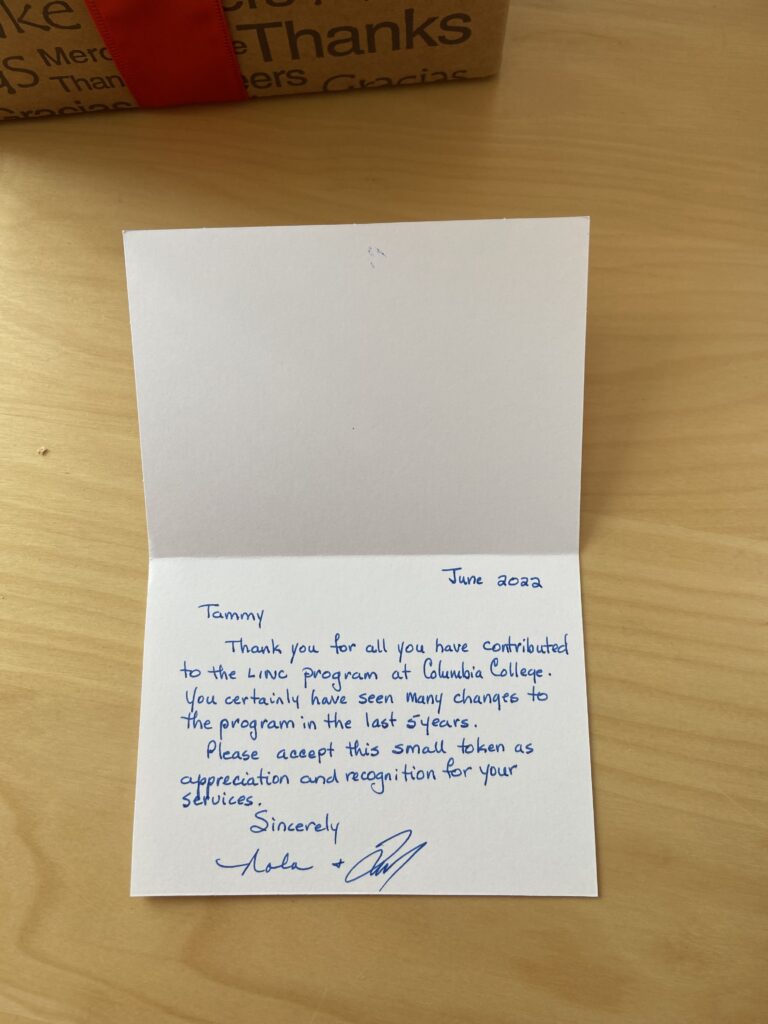 Thanks
Than
Gracias
June 2022
Tammy
Thank you for all you have contributed
to the LINC program at Columbia College.
You certainly have seen many changes to
the program in the last 5 years.
Please accept this small token as
appreciation and recognition for your
services.
Sincerely
Nola +